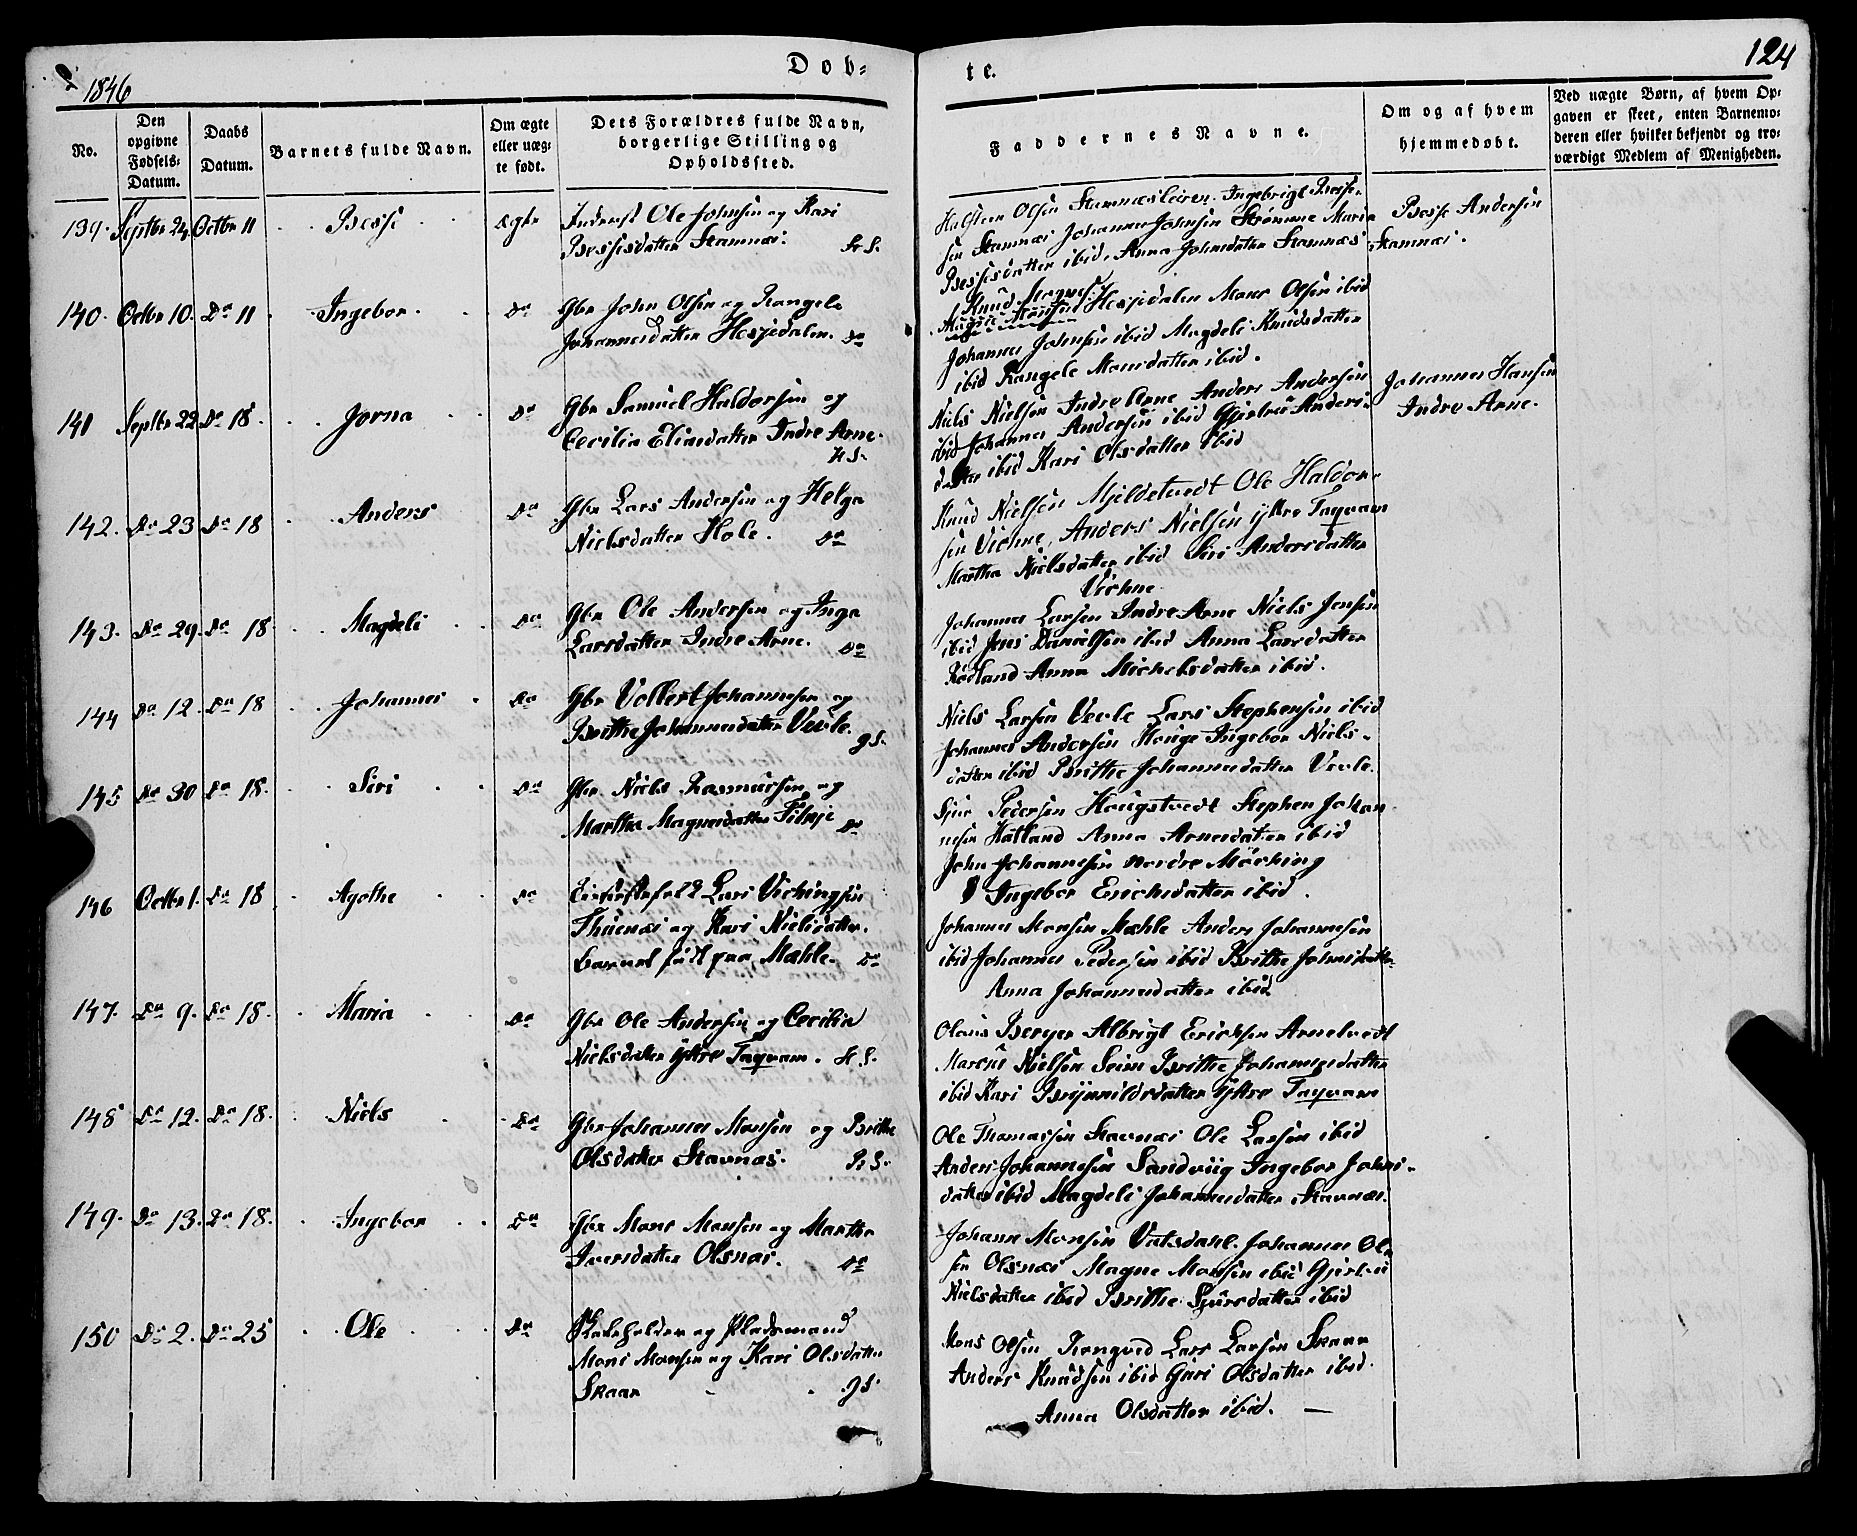 1846
Døb-
te.
124
No.
Den opgivne Fødsels-Datum.
Daabs Datum.
Barnets fulde Navn.
Om ægte eller uægte født.
Dets Forældres fulde Navn, borgerlige Stilling og Opholdssted.
Faddernes Navne.
Om og af hvem hjemmedøbt.
Ved uægte Børn, af hvem Opgaven er skeet, enten Barnemoderen eller hvilket bekjendt og troværdigt Medlem af Menigheden.
139. Septbr 24. Octbr 11 Besse ægte Inderst Ole Johnsen og Kari
Bessesdatter Stamnæs. St. S.
Halsteen Olsen Stamnæsleiren. Ingebrigt Besse-
sen Stamnæs Johannes Johnsen Strømme Maria
Bessesdatter ibid. Anna Johnsdatter Stamnæs
Besse Andersen
Stamnæs.
140. Octbr 10. Do 11 Ingebor Do Gbr John Olsen og Rangele
Johannesdatter Hesjedalen. Do
Knud Magnes.
Hesjedalen Mons Olsen ibid
Johannes Johnsen ibid Magdeli Knudsdatter
ibid Rangele Monsdatter ibid.
141 Septbr 22 Do 18. Jorna Do Gbr Samuel Haldorsen og
Cecilia Eliasdatter Indre Arne.
H S.
Niels Nielsen Indre Arne Anders Andersen
ibid Johannes Andersen ibid Gjertrü Anders-
datter ibid Kari Olsdatter ibid
Johannes Hansen
Indre Arne.
142. Do 23 Do 18 Anders Do Gbr Lars Andersen og Helga
Nielsdatter Hole. Do
Knud Nielsen Mjeldetvedt Ole Haldor-
sen Vichne, Anders Nielsen Yttre Taqvam
Martha Nielsdatter ibid Siri Andersdatter
Vichne.
143. Do 29. Do 18. Magdeli Do Gbr Ole Andersen og Inga
Larsdatter Indre Arne. Do
Johannes Larsen Indre Arne Niels Jensen
ibid Jens Danielsen ibid Anna Larsdatter
Rödland Anna Michelsdatter ibid.
144 Do 12. Do 18 Johannes Do Gbr Vollert Johannesen og
Brithe Johannesdatter Vevle.
g S.
Niels Larsen Vevle Lars Stephensen ibid
Johannes Andersen Houge Ingebor Niels-
datter ibid Brithe Johannesdatter Vevle.
145 Do 30 Do 18. Siri Do Gbr Niels Rasmussen og
Martha Magnesdatter Do
Sjur Pedersen Hougstvedt Stephen Johan-
nesen Hatland Anna Arnesdatter ibid
John Johannesen nordre
Ingebor Erichsdatter ibid.
146 Octbr 1. Do 18 Agathe Do Lars Vichingsen
og Kari Nielsdatter.
Barnet født paa Mæhle. Do
Johannes Monsen Mæhle Anders Johannesen
ibid Johannes Pedersen ibid Brithe Johnsdatter
Anna Johannesdatter ibid
147. Do 9. Do 18. Maria Do Gbr Ole Andersen og Cecilia
Nielsdatter Yttre Taqvam. H. S.
Olaus Berger Albrigt Erichsen Arnetvedt
Marcus Nielsen Seim Brithe Johannesdatter
ibid Kari Brynnildsdatter Yttre Taqvam
148 Do 12. Do 18. Niels Do Gbr Johannes Monsen og Brithe
Olsdatter Stavnæs.
Ole Thomassen Stavnæs Ole Larsen ibid
Anders Johannesen Sandviig Ingebor Johns-
datter ibid Magdeli Johannesdatter Stavnæs.
149. Do 13. Do 18. Ingebor Do Gbr Mons Monsen og Martha
Iversdatter Olsnæs. Do
Johann Monsen Vatsdahl. Johannes Ol-
sen Olsnæs Magne Monsen ibid Gjertrü
Nielsdatter ibid Brithe Sjursdatter ibid
150 Do 2. Do 25 Ole Do og Pladsmand
Mons Monsen og Kari Olsdatter
Skaar g S.
Mons Olsen Rongved Lars Larsen Skaar
Anders Knudsen ibid Guri Olsdatter ibid.
Anna Olsdatter ibid.